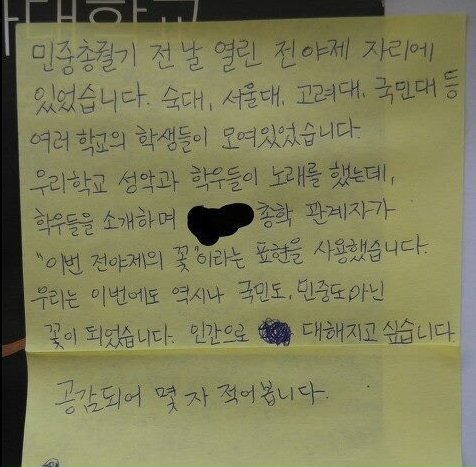 대학교
민중총궐기 전날 열린 전야제 자리에
있었습니다. 숙대, 서울대, 고려대, 국민대 등
여러 학교의 학생들이 모여있었습니다.
우리학교 성악과 학우들이 노래를 했는데,
학우들을 소개하며 총학 관계자가
"이번 전야제의 꽃"이라는 표현을 사용했습니다.
우리는 이번에도 역시나 국민도, 민중도 아닌
꽃이 되었습니다. 인간으로 대해지고 싶습니다.
공감되어 몇 자 적어봅니다.